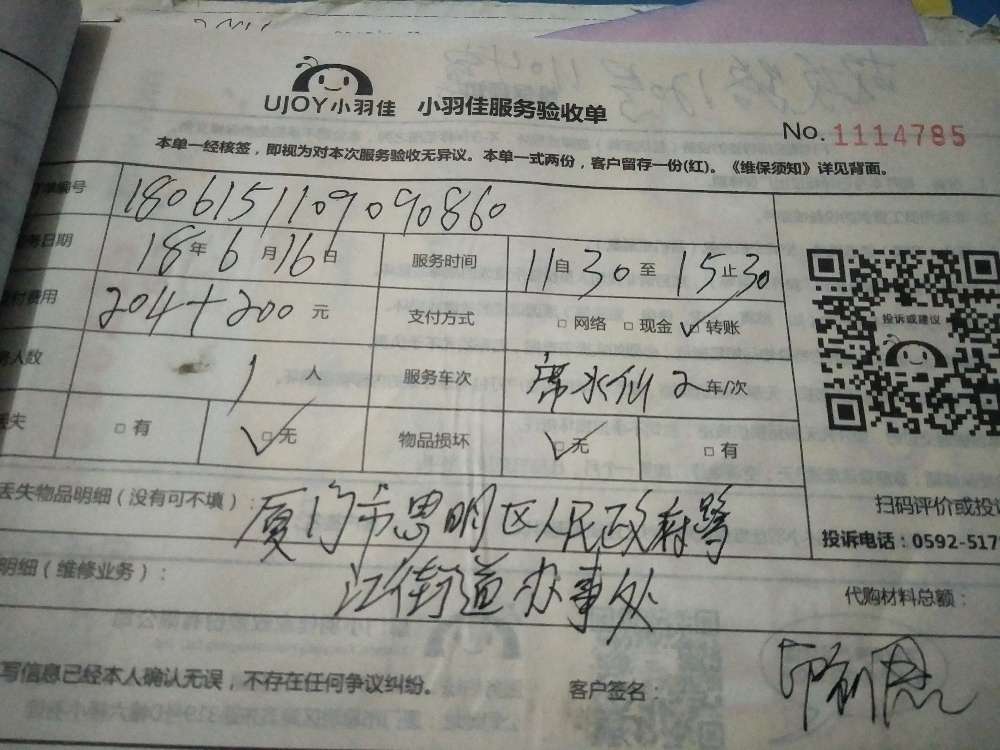 UJOY小羽佳 小羽佳服务验收单
No. 1114785
本单一经核签，即视为对本次服务验收无异议。本单一式两份，客户留存一份(红)。《维保须知》详见背面。
编号 1806151109090860
日期 18年6月16日 服务时间 11自30至15止30
费用 204+200元 支付方式 □网络 □现金 □转账
投诉或建议
人数 1人 服务车次 席水仙 2年/次
失 □有 □无 物品损坏 □无 □有
丢失物品明细（没有可不填）： 厦门市思明区人民政府鹭
扫码评价或投
投诉电话：0592-517
明细（维修业务）： 江街道办事处
代购材料总额：
写信息已经本人确认无误，不存在任何争议纠纷。 客户签名：